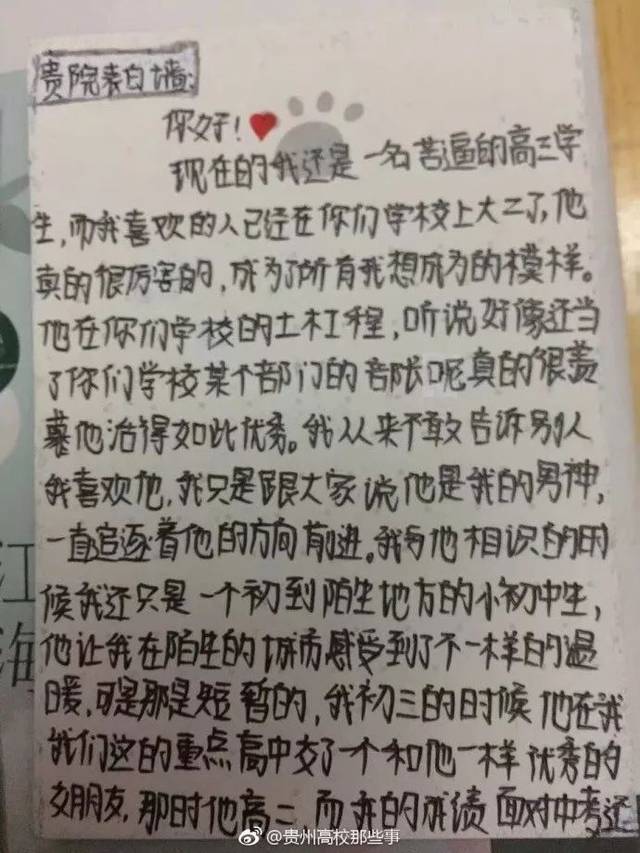 贵院表白墙:
你好!
现在的我还是一名苦逼的高三学
生,而我喜欢的人已经在你们学校上大二了,他
真的很厉害的,成为了所有我想成为的模样。
他在你们学校的土木工程,听说好像还当
了你们学校某个部门的部长呢真的很羡
慕他活得如此优秀。我从来不敢告诉别人
我喜欢他,我只是跟大家说他是我的男神,
一直追逐着他的方向前进。我与他相识的时
候我还只是一个初到陌生地方的小初中生,
他让我在陌生的城市感受到了不一样的温
暖,可是那是短暂的,我初三的时候他在我
我们这的重点高中交了一个和他一样优秀的
女朋友,那时他高二,而我的成绩面对中考还
江
海
@贵州高校那些事